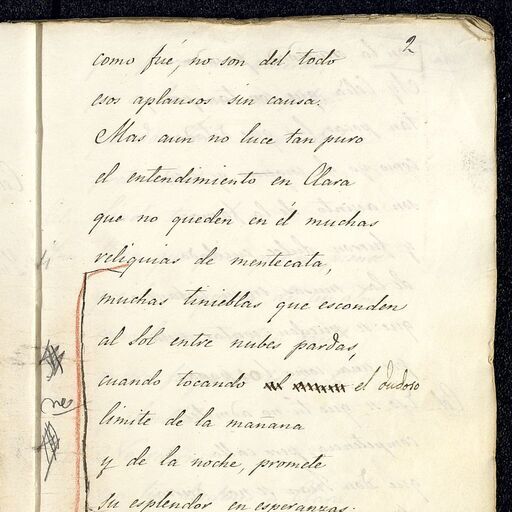 2
como fué, no son del todo
esos aplausos sin causa.
Mas aun no luce tan puro
el entendimiento en Clara
que no queden en él muchas
reliquias de mentecata,
muchas tinieblas que esconden
al Sol entre nubes pardas,
cuando tocando el dudoso
limite de la manana
y de la noche, promete
su esplendor en esperanzas.